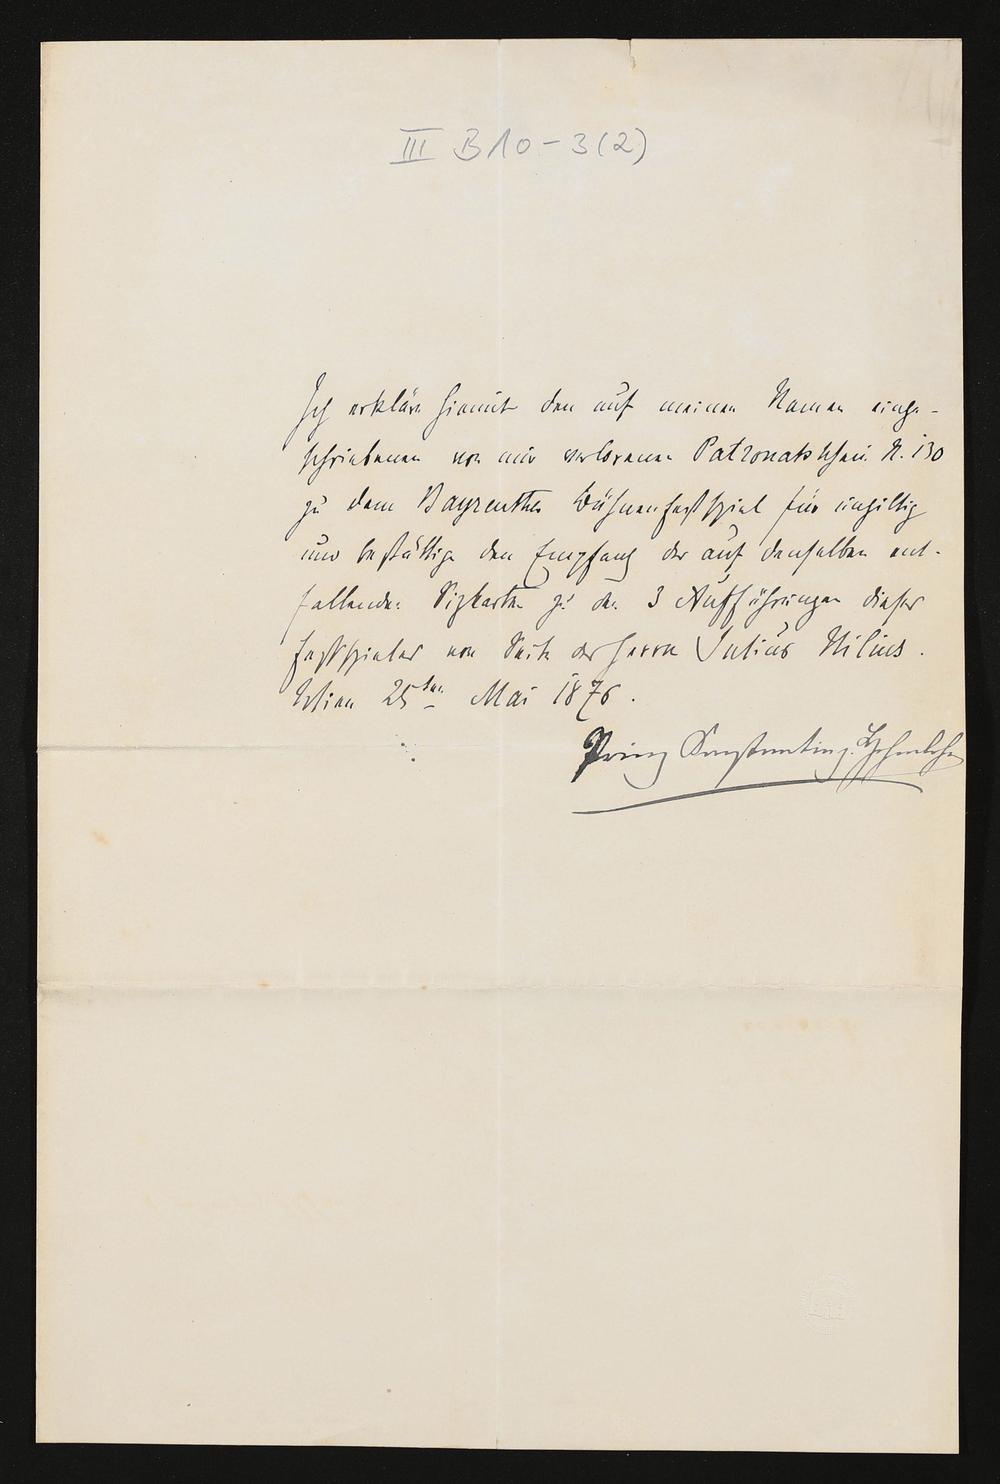 III B 10 - 3 (2)
Ich erkläre hiemit den auf meinen Namen einge-
schriebenen von mir verlorenen Patronatsschein N. 130
zu dem Bayreuther Bühnenfestspiel für ungiltig
und bestättige den Empfang der auf denselben ent-
fallenden Sizkarten zu den 3 Aufführungen dieser
Festspieles von Seite des Herrn Julius
Wien 25ten Mai 1876.
Prinz Constantin z. Hohenlohe